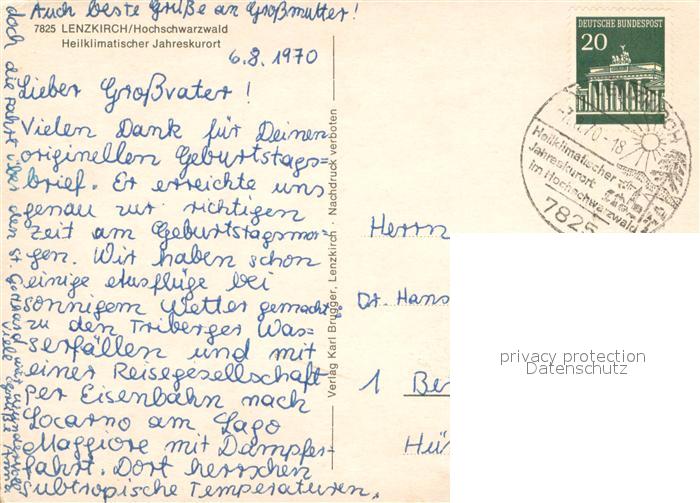 Auch beste Grüße an Großmutter!
7825 LENZKIRCH/Hochschwarzwald
Heilklimatischer Jahreskurort
6.8.1970
Lieber Großvater!
Vielen Dank für Deinen
originellen Geburtstags=
brief. Er erreichte uns
genau zur richtigen
Zeit am Geburtstagsmor=
gen. Wir haben schon
einige Ausflüge bei
sonnigem Wetter gemacht:
zu den Triberger Was=
serfällen und mit
einer Reisegesellschaft
per Eisenbahn nach
Locarno am Lago
Maggiore mit Dampfer=
fahrt. Dort herrschen
subtropische Temperaturen,
doch die Fahrt über den St. Gotthard war wundervoll
Viele Grüße
Verlag Karl Brugger, Lenzkirch - Nachdruck verboten
DEUTSCHE BUNDESPOST
20
70-18
Heilklimatischer
Jahreskurort
im Hochschwarzwald
7825
Herrn
Dr. Hans
1 Be
Hü
privacy protection
Datenschutz